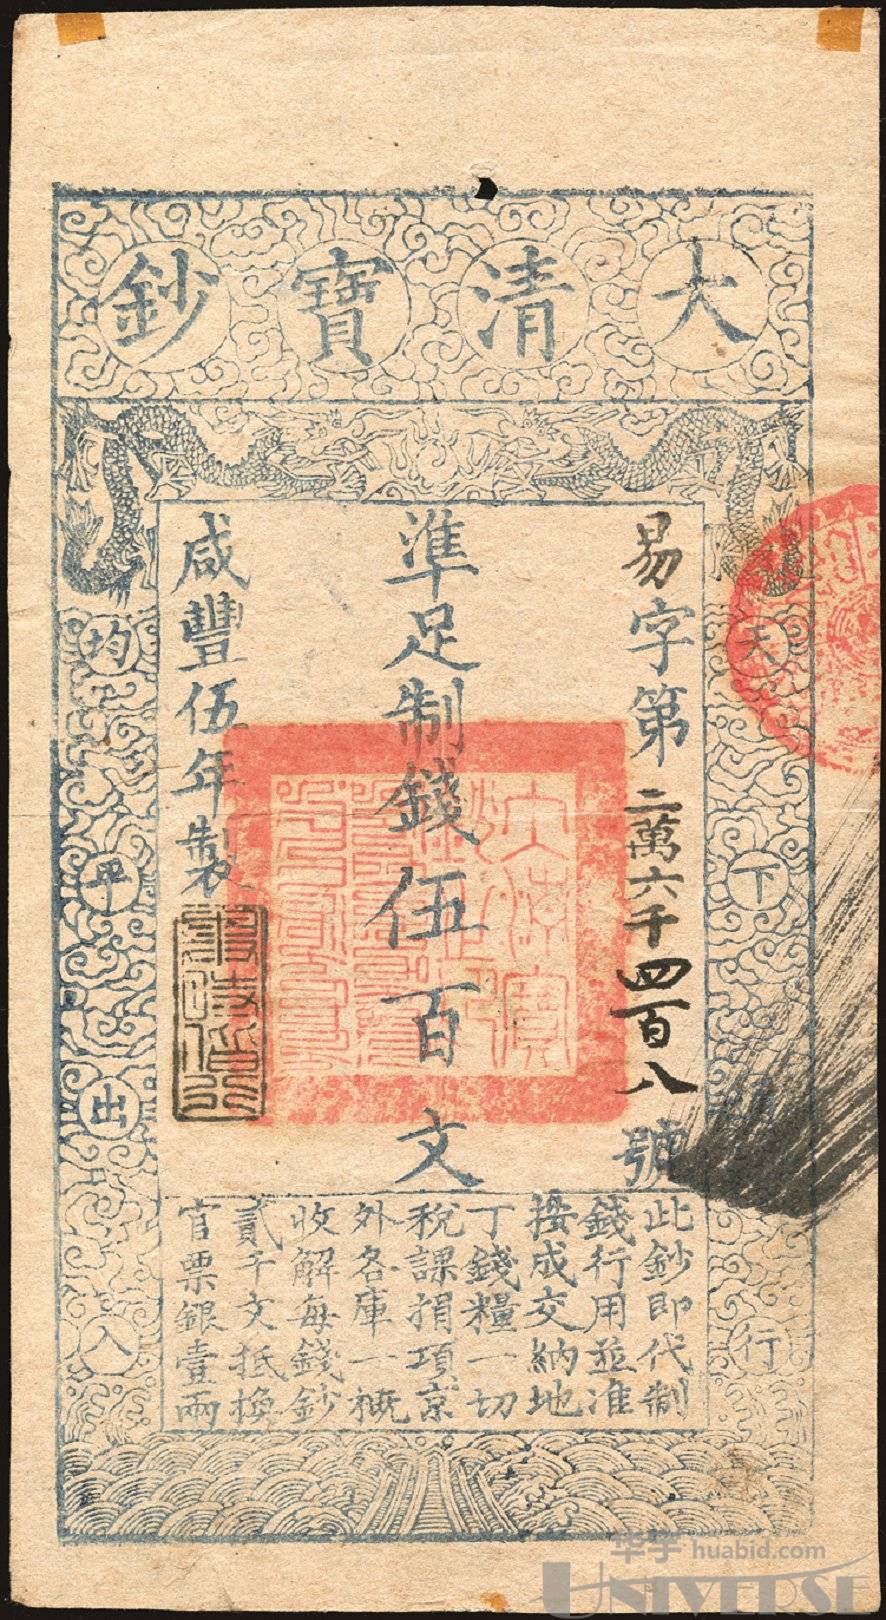 大清寶鈔
天下通行
均平出入
易字第二萬六千四百八號
準足制錢伍百文
咸豐伍年製
此鈔即代制
錢行用並准
按成交納地
丁錢糧一切
稅課捐項京
外各庫一概
收解每錢鈔
貳千文抵換
官票銀壹兩
大清寶
华宇 huabid.com
UNIVERSE